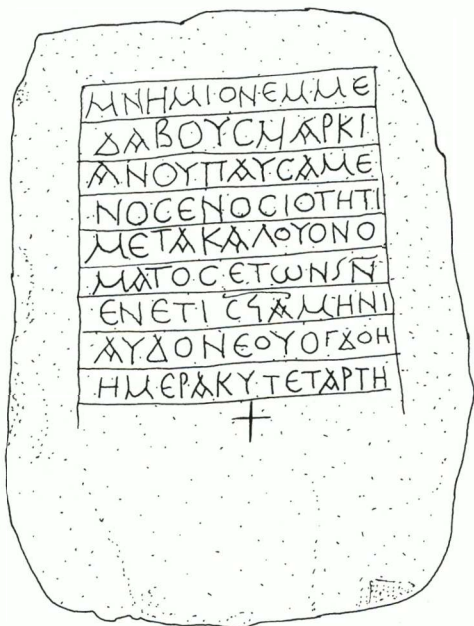 ΜΝΗΜΙΟΝΕΜΜΕ
ΔΑΒΟΥCΜΑΡΚΙ
ΑΝΟΥΠΑΥCΑΜΕ
ΝΟCΕΝΟCΙΟΤΗΤΙ
ΜΕΤΑΚΑΛΟΥΟΝΟ
ΜΑΤΟCΕΤΩΝϚΝ̅
ΕΝΕΤΙC̅Ϟ̅ΑΜΗΝΙ
ΑΥΔΟΝΕΟΥΟΓΔΟΗ
ΗΜΕΡΑΚΥΤΕΤΑΡΤΗ
+